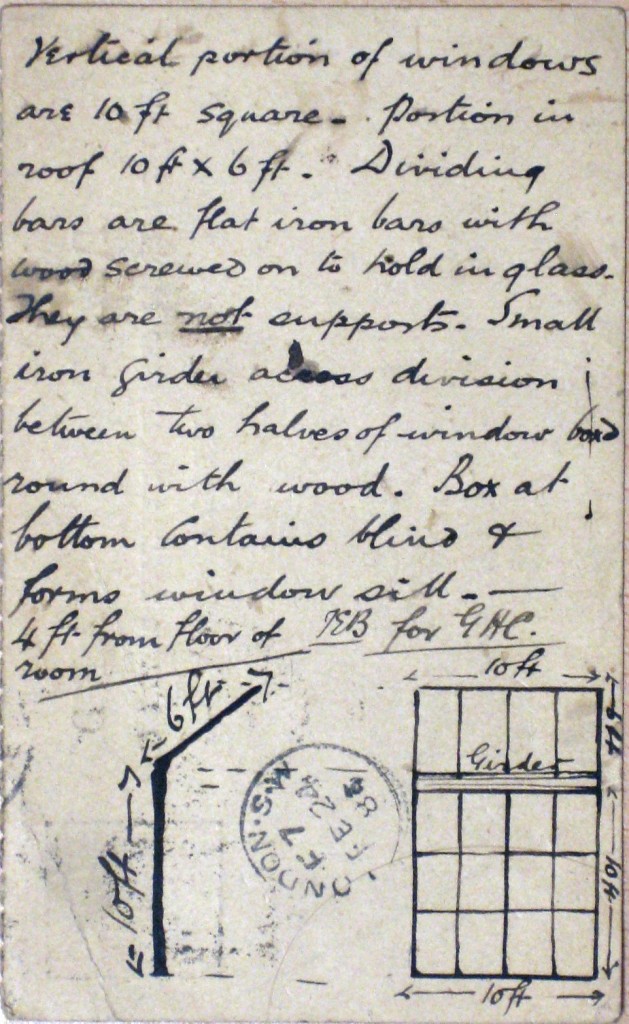 Vertical portion of windows
are 10 ft square - Portion in
roof 10 ft x 6 ft. Dividing
bars are flat iron bars with
wood screwed on to hold in glass.
They are not supports. Small
iron girder across division
between two halves of window boxed
round with wood. Box at
bottom contains blind &
forms window sill. —
4 ft from floor of
room
for GHC.
6 ft
10 ft
10 ft
6 ft
Girder
10 ft
10 ft
LONDON. W.S.
F7
FE 24